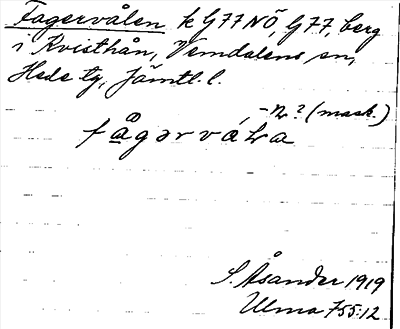 Fagervålen k G77NÖ, G77, berg
i Kvisthån, Vemdalens sn,
Hede tg, Jämtl. l.
-n? (mask.)
fågərvála
S. Åsander 1919
Ulma 755:12